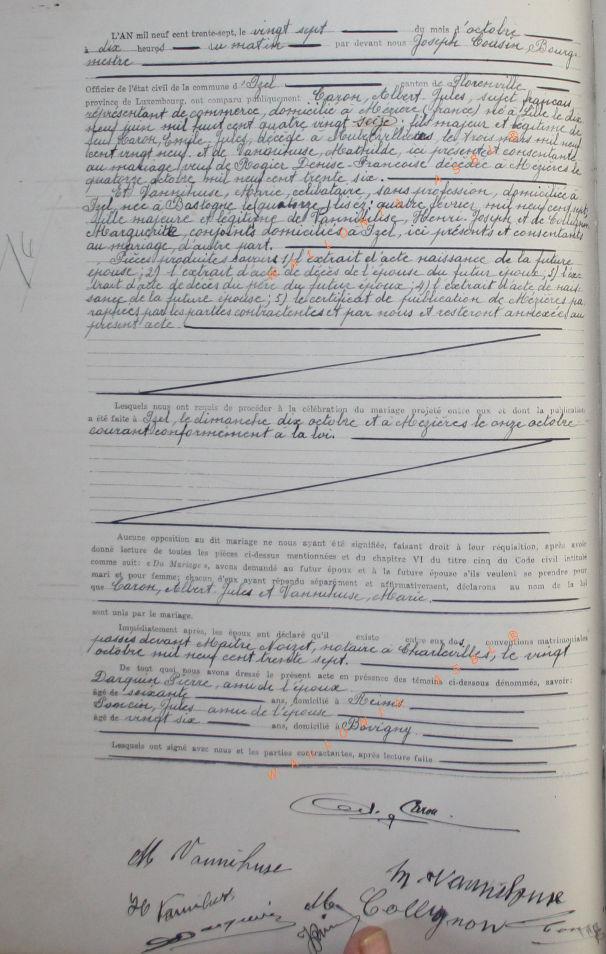 L'AN mil neuf cent trente-sept, le vingt sept du mois d'octobre
à dix heures du matin par devant nous Joseph Cousin, Bourg-
mestre
Officier de l'état civil de la commune d'Izel canton de Florenville
province de Luxembourg, ont comparu publiquement Caron, Albert Jules, sujet français
représentant de commerce, domicilié à Mézières (France) né à le dix
neuf juin mil huit cent quatre vingt seize, fils majeur et légitime de
feu Caron, Emile, Jules, décédé à le trois mars mil neuf
cent vingt neuf. et de Vannihuse, Mathilde, ici présente et consentante
au mariage, veuf de Rogier, Denise-Françoise décédée à Mézières le
quatorze octobre mil neuf cent trente six.
Et Vannihuse, Marie, célibataire, sans profession, domiciliée à
Izel, née à Bastogne le quatorze (lisez: quatre) février mil neuf cent sept,
fille majeure et légitime de Vannihuse, Henri-Joseph et de Collignon
Marguerite, conjoints domiciliés à Izel, ici présents et consentants
au mariage, d'autre part.
Pièces produites savoir: 1) l'extrait d'acte naissance de la future
épouse; 2) l'extrait d'acte de décès de l'épouse du futur époux; 3) l'ex-
trait d'acte de décès du père du futur époux; 4) l'extrait d'acte de nais-
sance de la future épouse; 5) le certificat de publication de Mézières pa-
raphées par les parties contractantes et par nous et resteront annexées au
présent acte.
Lesquels nous ont requis de procéder à la célébration du mariage projeté entre eux et dont la publication
a été faite à Izel, le dimanche dix octobre et à Mézières le onze octobre
courant conformément à la loi.
Aucune opposition au dit mariage ne nous ayant été signifiée, faisant droit à leur réquisition, après avoir
donné lecture de toutes les pièces ci-dessus mentionnées et du chapitre VI du titre cinq du Code civil intitulé
comme suit: « Du Mariage », avons demandé au futur époux et à la future épouse s'ils veulent se prendre pour
mari et pour femme; chacun d'eux ayant répondu séparément et affirmativement, déclarons au nom de la loi
que Caron, Albert Jules et Vannihuse, Marie
sont unis par le mariage.
Immédiatement après, les époux ont déclaré qu'il existe entre eux des conventions matrimoniales
passées devant Maître Noizet, notaire à Charleville, le vingt
octobre mil neuf cent trente sept.
De tout quoi nous avons dressé le présent acte en présence des témoins ci-dessous dénommés, savoir:
Darquin Pierre, ami de l'époux
âgé de soixante ans, domicilié à Reims
Poncin, Jules ami de l'épouse
âgé de vingt six ans, domicilié à Bovigny.
Lesquels ont signé avec nous et les parties contractantes, après lecture faite
WALLONIA ASBL
WALLONIA ASBL
Caron
M Vannihuse
M Vannihuse
Collignon